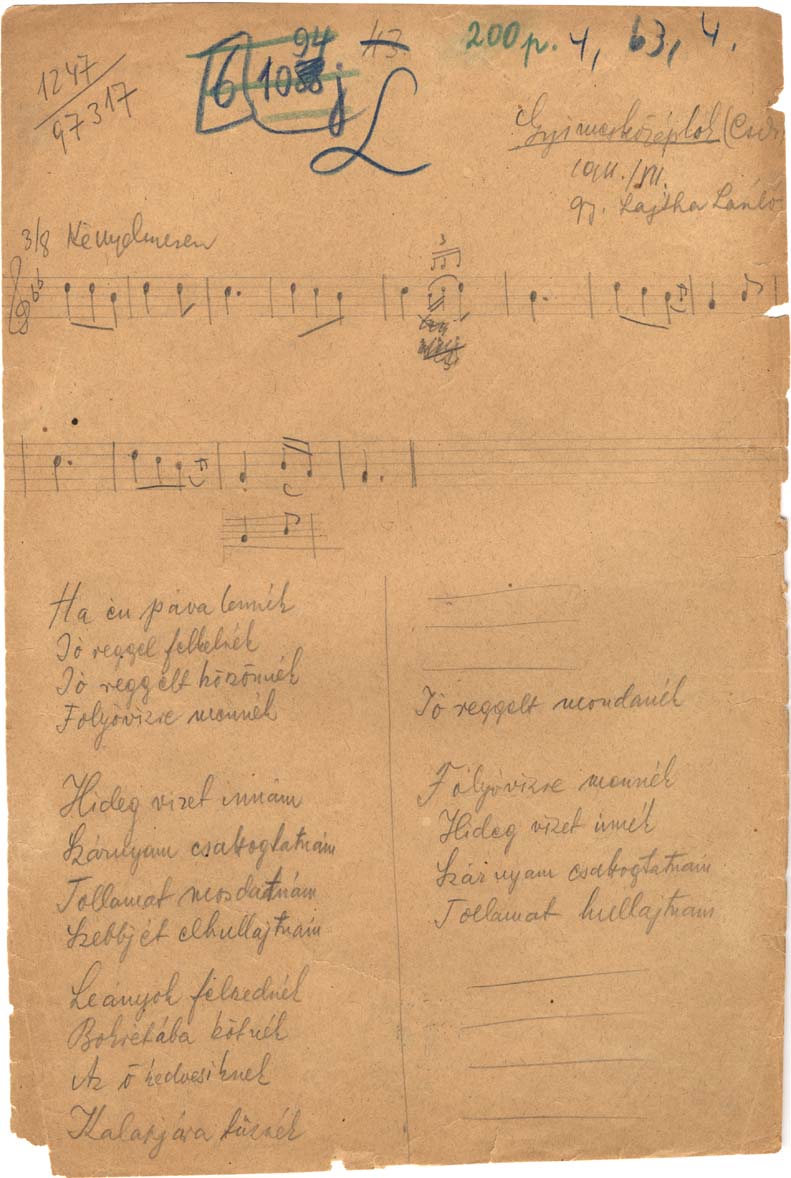 1247
97317
94
6 10 j
L
200 p. 4, 63, 4.
Gyimesközéplok (Csík
1911./VII.
gy. Lajtha László
3/8 Kényelmesen
3
Ha én páva lennék
Jó reggel felkelnék
Jó reggelt köszönnék
Folyóvizre mennék
Hideg vizet innám
Szárnyam csabogtatnám
Tollamat mosdatnám
Szebbjét elhullajtnám
Leányok félszednék
Bokrétába kötnék
Az ő kedvesiknek
Kalapjára tüznék
Jó reggelt mondanék
Fólyóvizre mennék
Hideg vizet innék
Szárnyam csabogtatnám
Tollamat hullajtnám